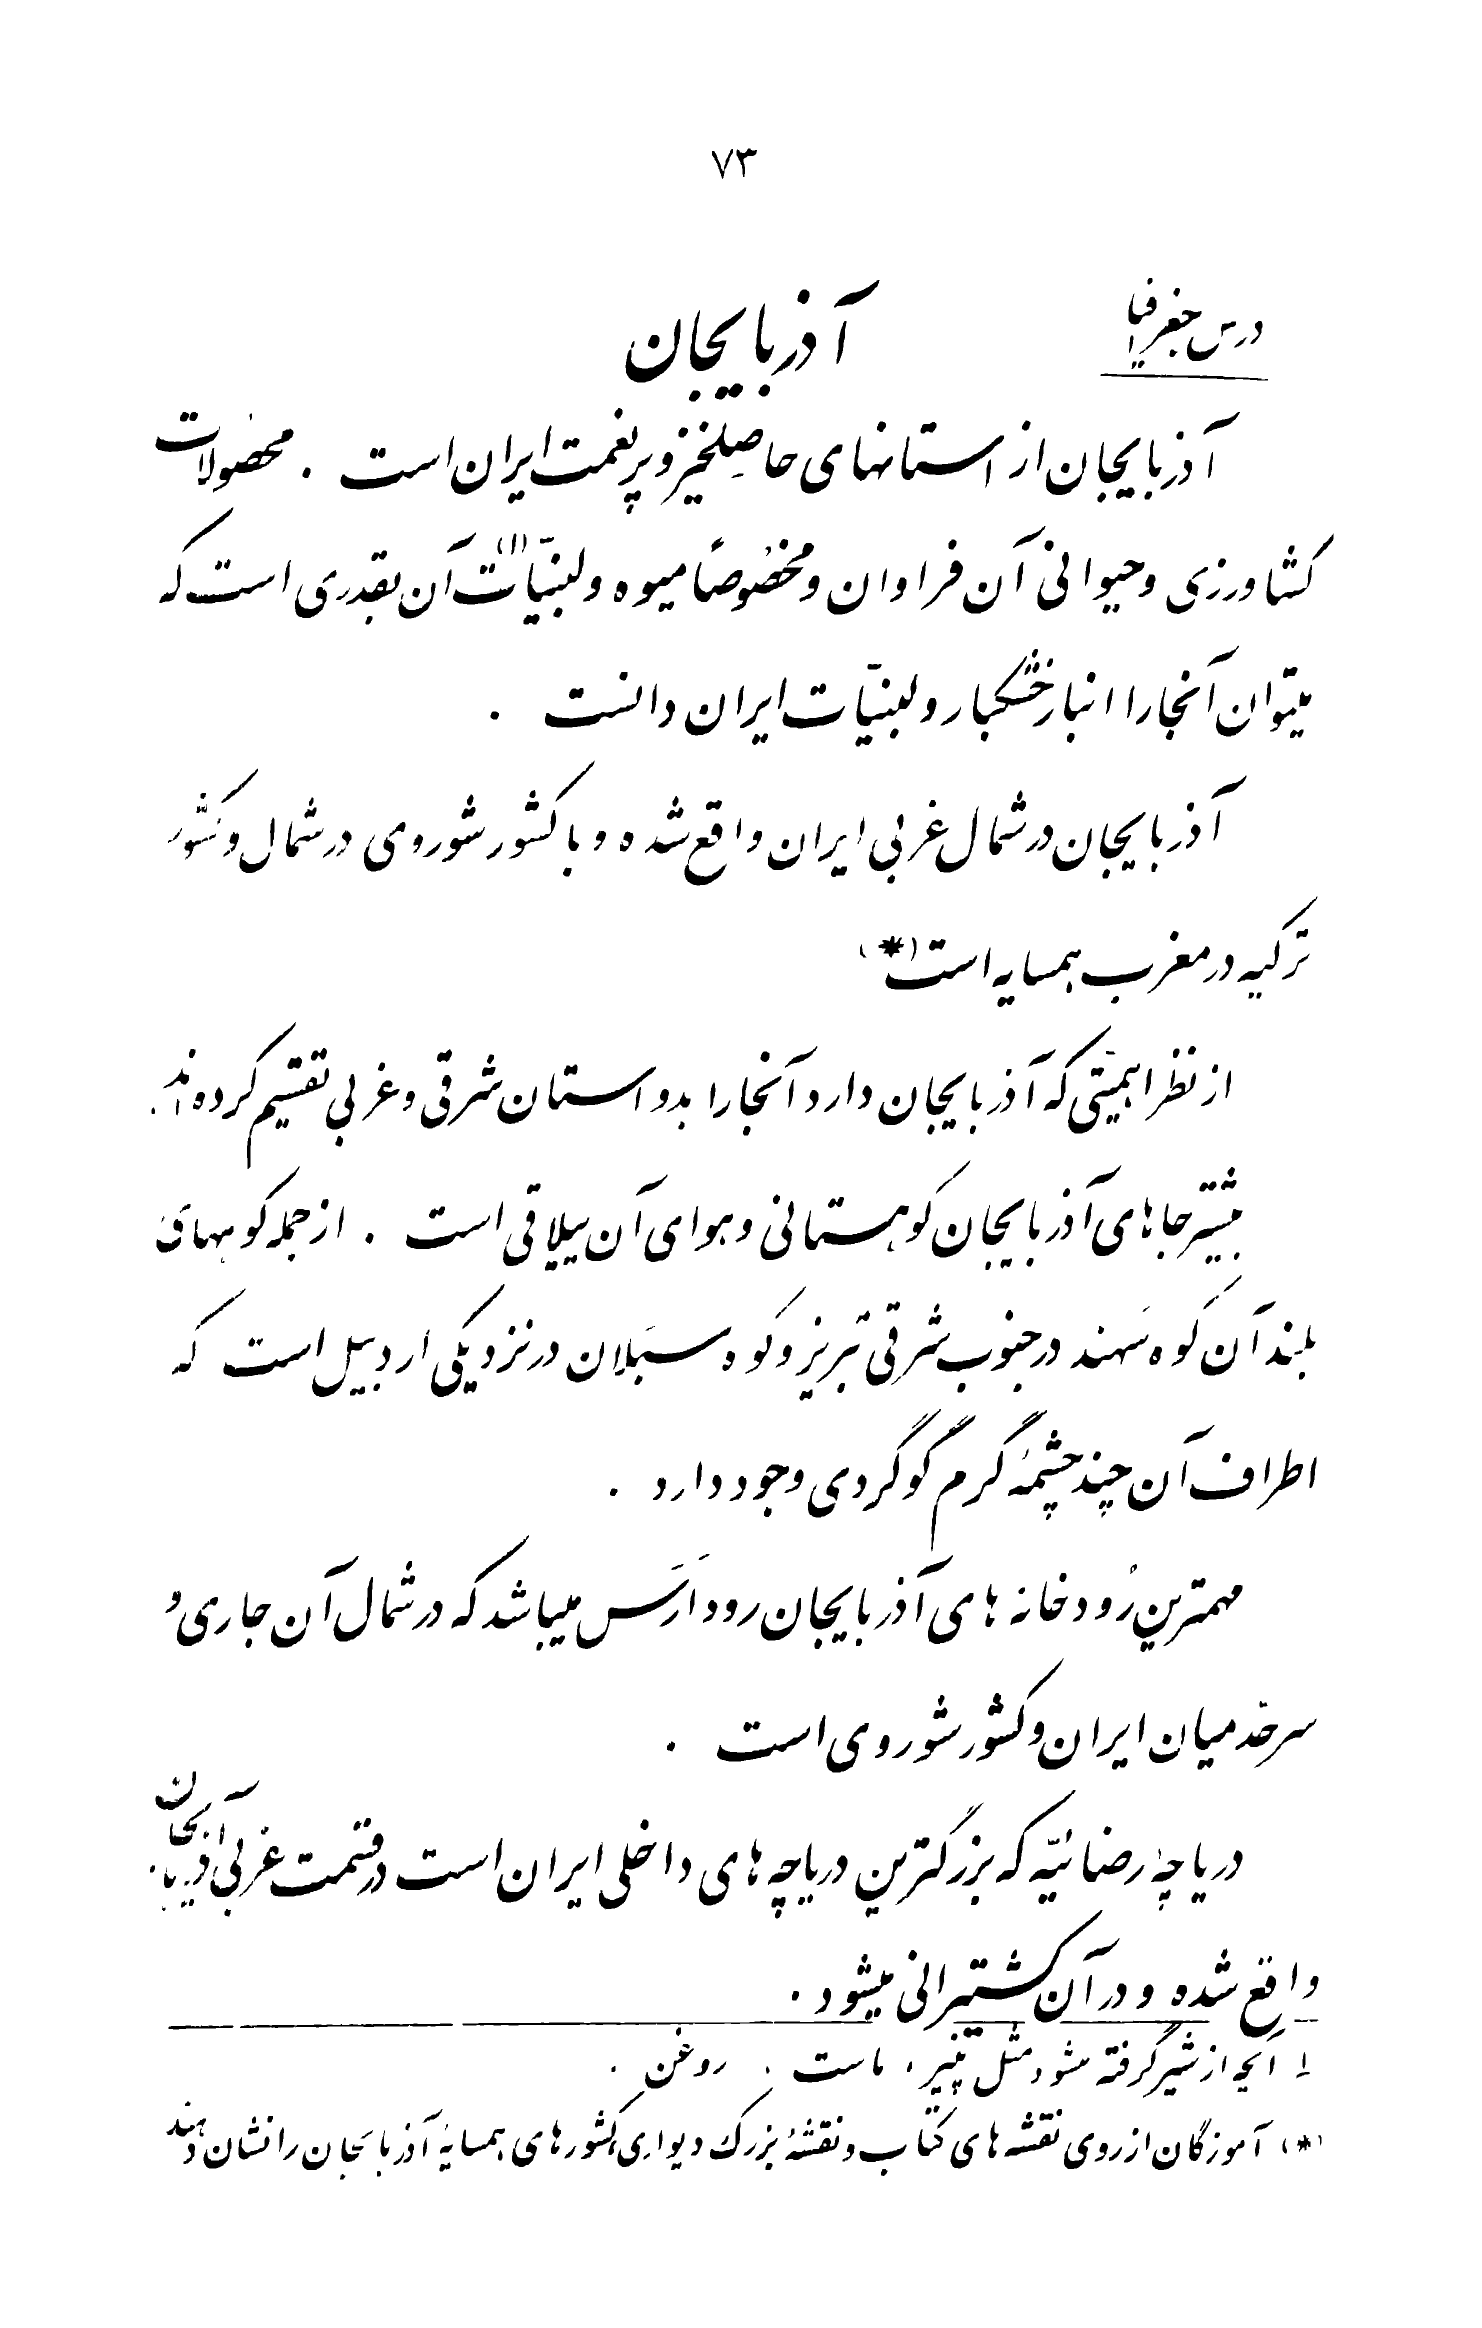 ۷۳
درس جغرافیا
آذربایجان
آذربایجان از استانهای حاصلخیز و پر نعمت ایران است . محصولات
کشاورزی و حیوانی آن فراوان و مخصوصاً میوه و لبنیّات(۱) آن بقدری است که
میتوان آنجا را انبار خشکبار و لبنیّات ایران دانست .
آذربایجان در شمال غربی ایران واقع شده و با کشور شوروی در شمال و کشور
ترکیه در مغرب همسایه است(*)
از نظر اهمیّتی که آذربایجان دارد آنجا را بدو استان شرقی و غربی تقسیم کرده‌اند.
بیشتر جاهای آذربایجان کوهستانی و هوای آن ییلاقی است . از جمله کوههای
بلند آن کوه سَهند در جنوب شرقی تبریز و کوه سَبَلان در نزدیکی اردبیل است که
اطراف آن چند چشمهٔ گرم گوگردی وجود دارد .
مهمترین رُودخانه های آذربایجان رود اَرَس میباشد که در شمال آن جاری و
سرحد میان ایران و کشور شوروی است .
دریاچهٔ رضائیّه که بزرگترین دریاچه های داخلی ایران است در قسمت غربی آذربایجان
واقع شده و در آن کشتیرانی میشود .
۱ـ آنچه از شیر گرفته میشود مثل پنیر ، ماست ، روغن .
(*) آموزگان از روی نقشه های کتاب و نقشهٔ بزرگ دیواری کشورهای همسایهٔ آذربایجان را نشان دهند